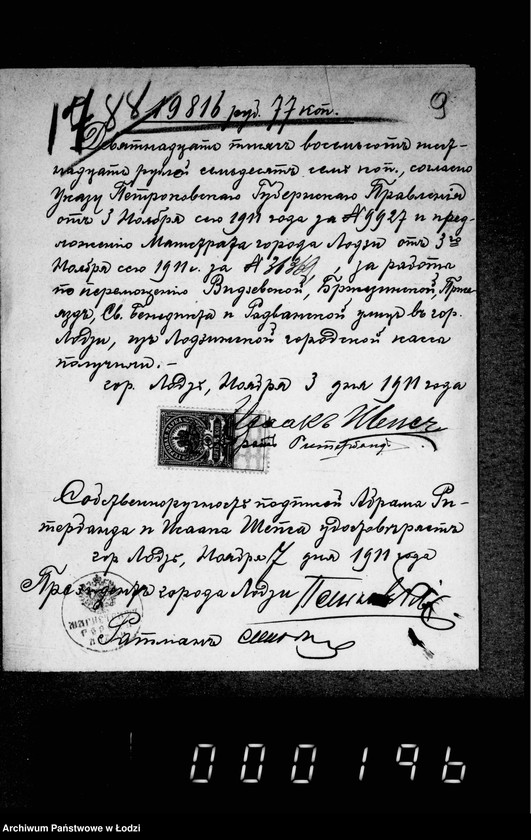 1788 19816 руб. 77 коп. 9
Девятнадцать тысяч восемьсот шест-
надцать рублей семьдесят семь коп., согласно
Указу Петроковскаго Губернскаго Правленія
отъ 3 Ноября сего 1911 года за № 9927 и пред-
ложенію Магистрата города Лодзи отъ 3го
Ноября сего 1911 г. за № за работы
по перемощенію Видзевской, Бржезинской,
Св. Бенедикта и Радванской улицъ въ гор.
Лодзи, изъ Лодзинской городской кассы
получили. —
гор. Лодзь, Ноября 3 дня 1911 года
Исаакъ Шепсъ
Собственноручность подписей Абрама Ри-
тербанда и Исаака Шепса удостовѣряетъ
гор. Лодзь, Ноября 7 дня 1911 года
Президентъ города Лодзи
Ратманъ
000196
Archiwum Państwowe w Łodzi